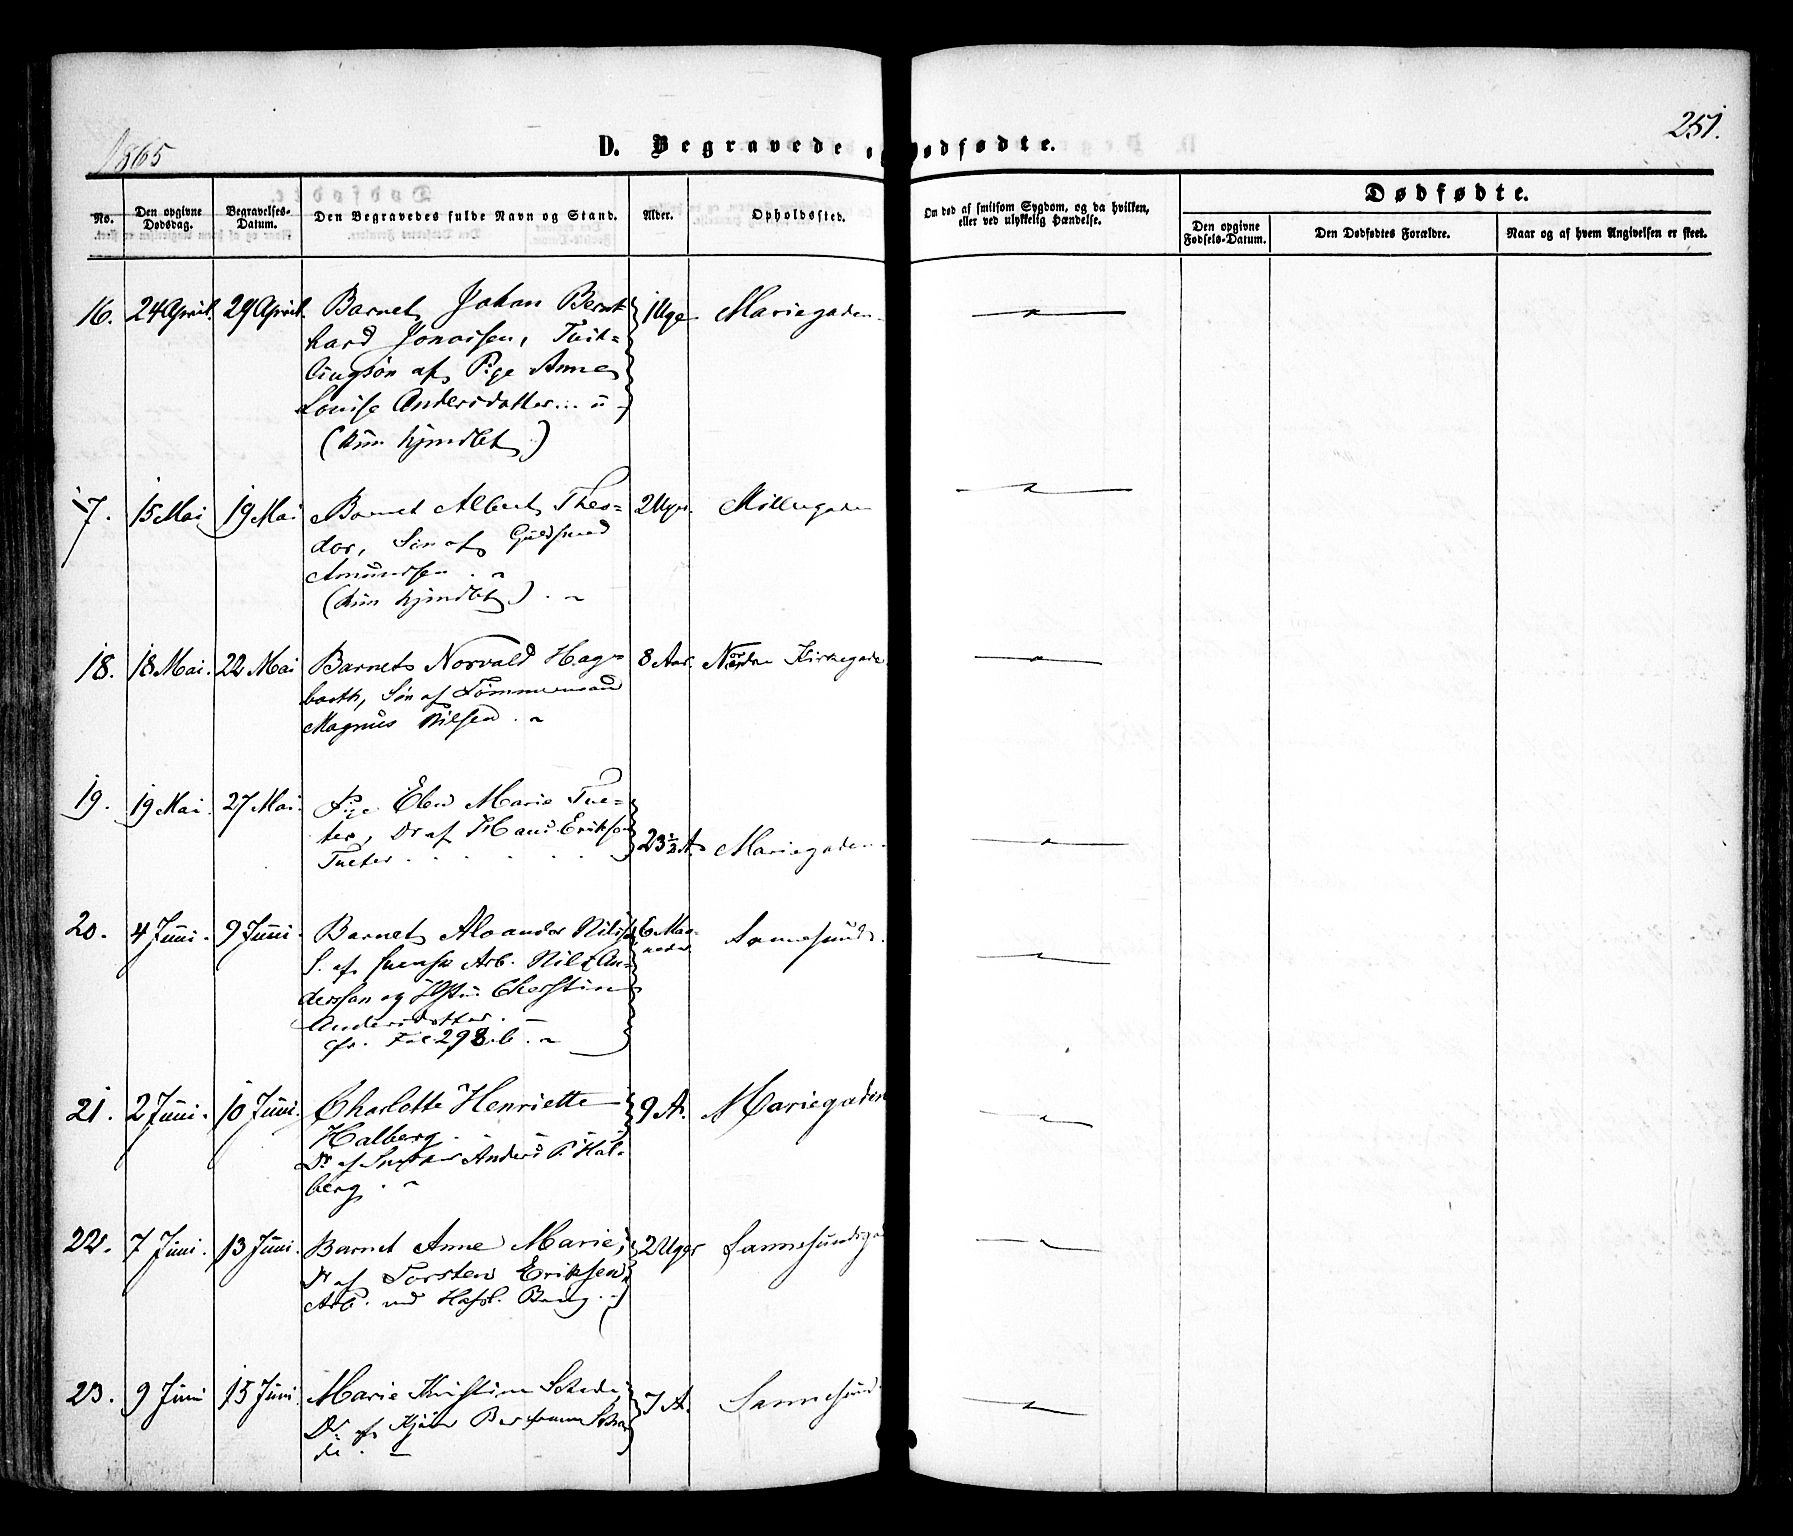 1865
251.
D. Begravede og Dødfødte.
No.
Den opgivne Dødsdag.
Begravelses-Datum.
Den Begravedes fulde Navn og Stand.
Alder.
Opholdssted.
Om død af smitsom Sygdom, og da hvilken, eller ved ulykkelig Hændelse.
Dødfødte.
Den opgivne Fødsels-Datum.
Den Dødfødtes Forældre.
Naar og af hvem Angivelsen er skeet.
16. 24 April. 29 April. Barnet Johan Bernt- 1 Uge Mariegaden
hard Jonassen, Tvil-
lingsøn af Pige Anne
Louise Andersdatter
(kun hjemdbt)
17. 15 Mai 19 Mai Barnet Albert Theo- 2 Uger Møllegaden
dor, Søn af Guldsmed
Amundsen
(kun hjemdbt)
18. 18 Mai. 22 Mai Barnet Norvald Hag- 8 Aar. Nordre Kirkegade
barth, Søn af Tømmermand
Magnus Nilsen
19. 19 Mai. 27 Mai. Pige Elen Marie Tve-
ter, Dr af Hans Eriksen 23½ A. Mariegaden
Tveter
20. 4 Juni. 9 Juni. Barnet Alexander 6 Maa-
neder. Sannesund
S. af svensk Arb. Nils An-
dersson og Cherstin
Andersdatter.
cfr. Fol 298.b.
21. 2 Juni. 10 Juni. Charlotte Henriette 9 A. Mariegaden
Halberg.
Dr af Anders P. Hal-
berg.
22. 7 Juni. 13 Juni. Barnet Anne Marie, 2 Uger Sannesundsga
Dr af Torsten Eriksen,
Arb. ved Hafsl. Brug.
23. 9 Juni 15 Juni Marie Kristine Schade 7 A. Sannesund
Dr. af
de